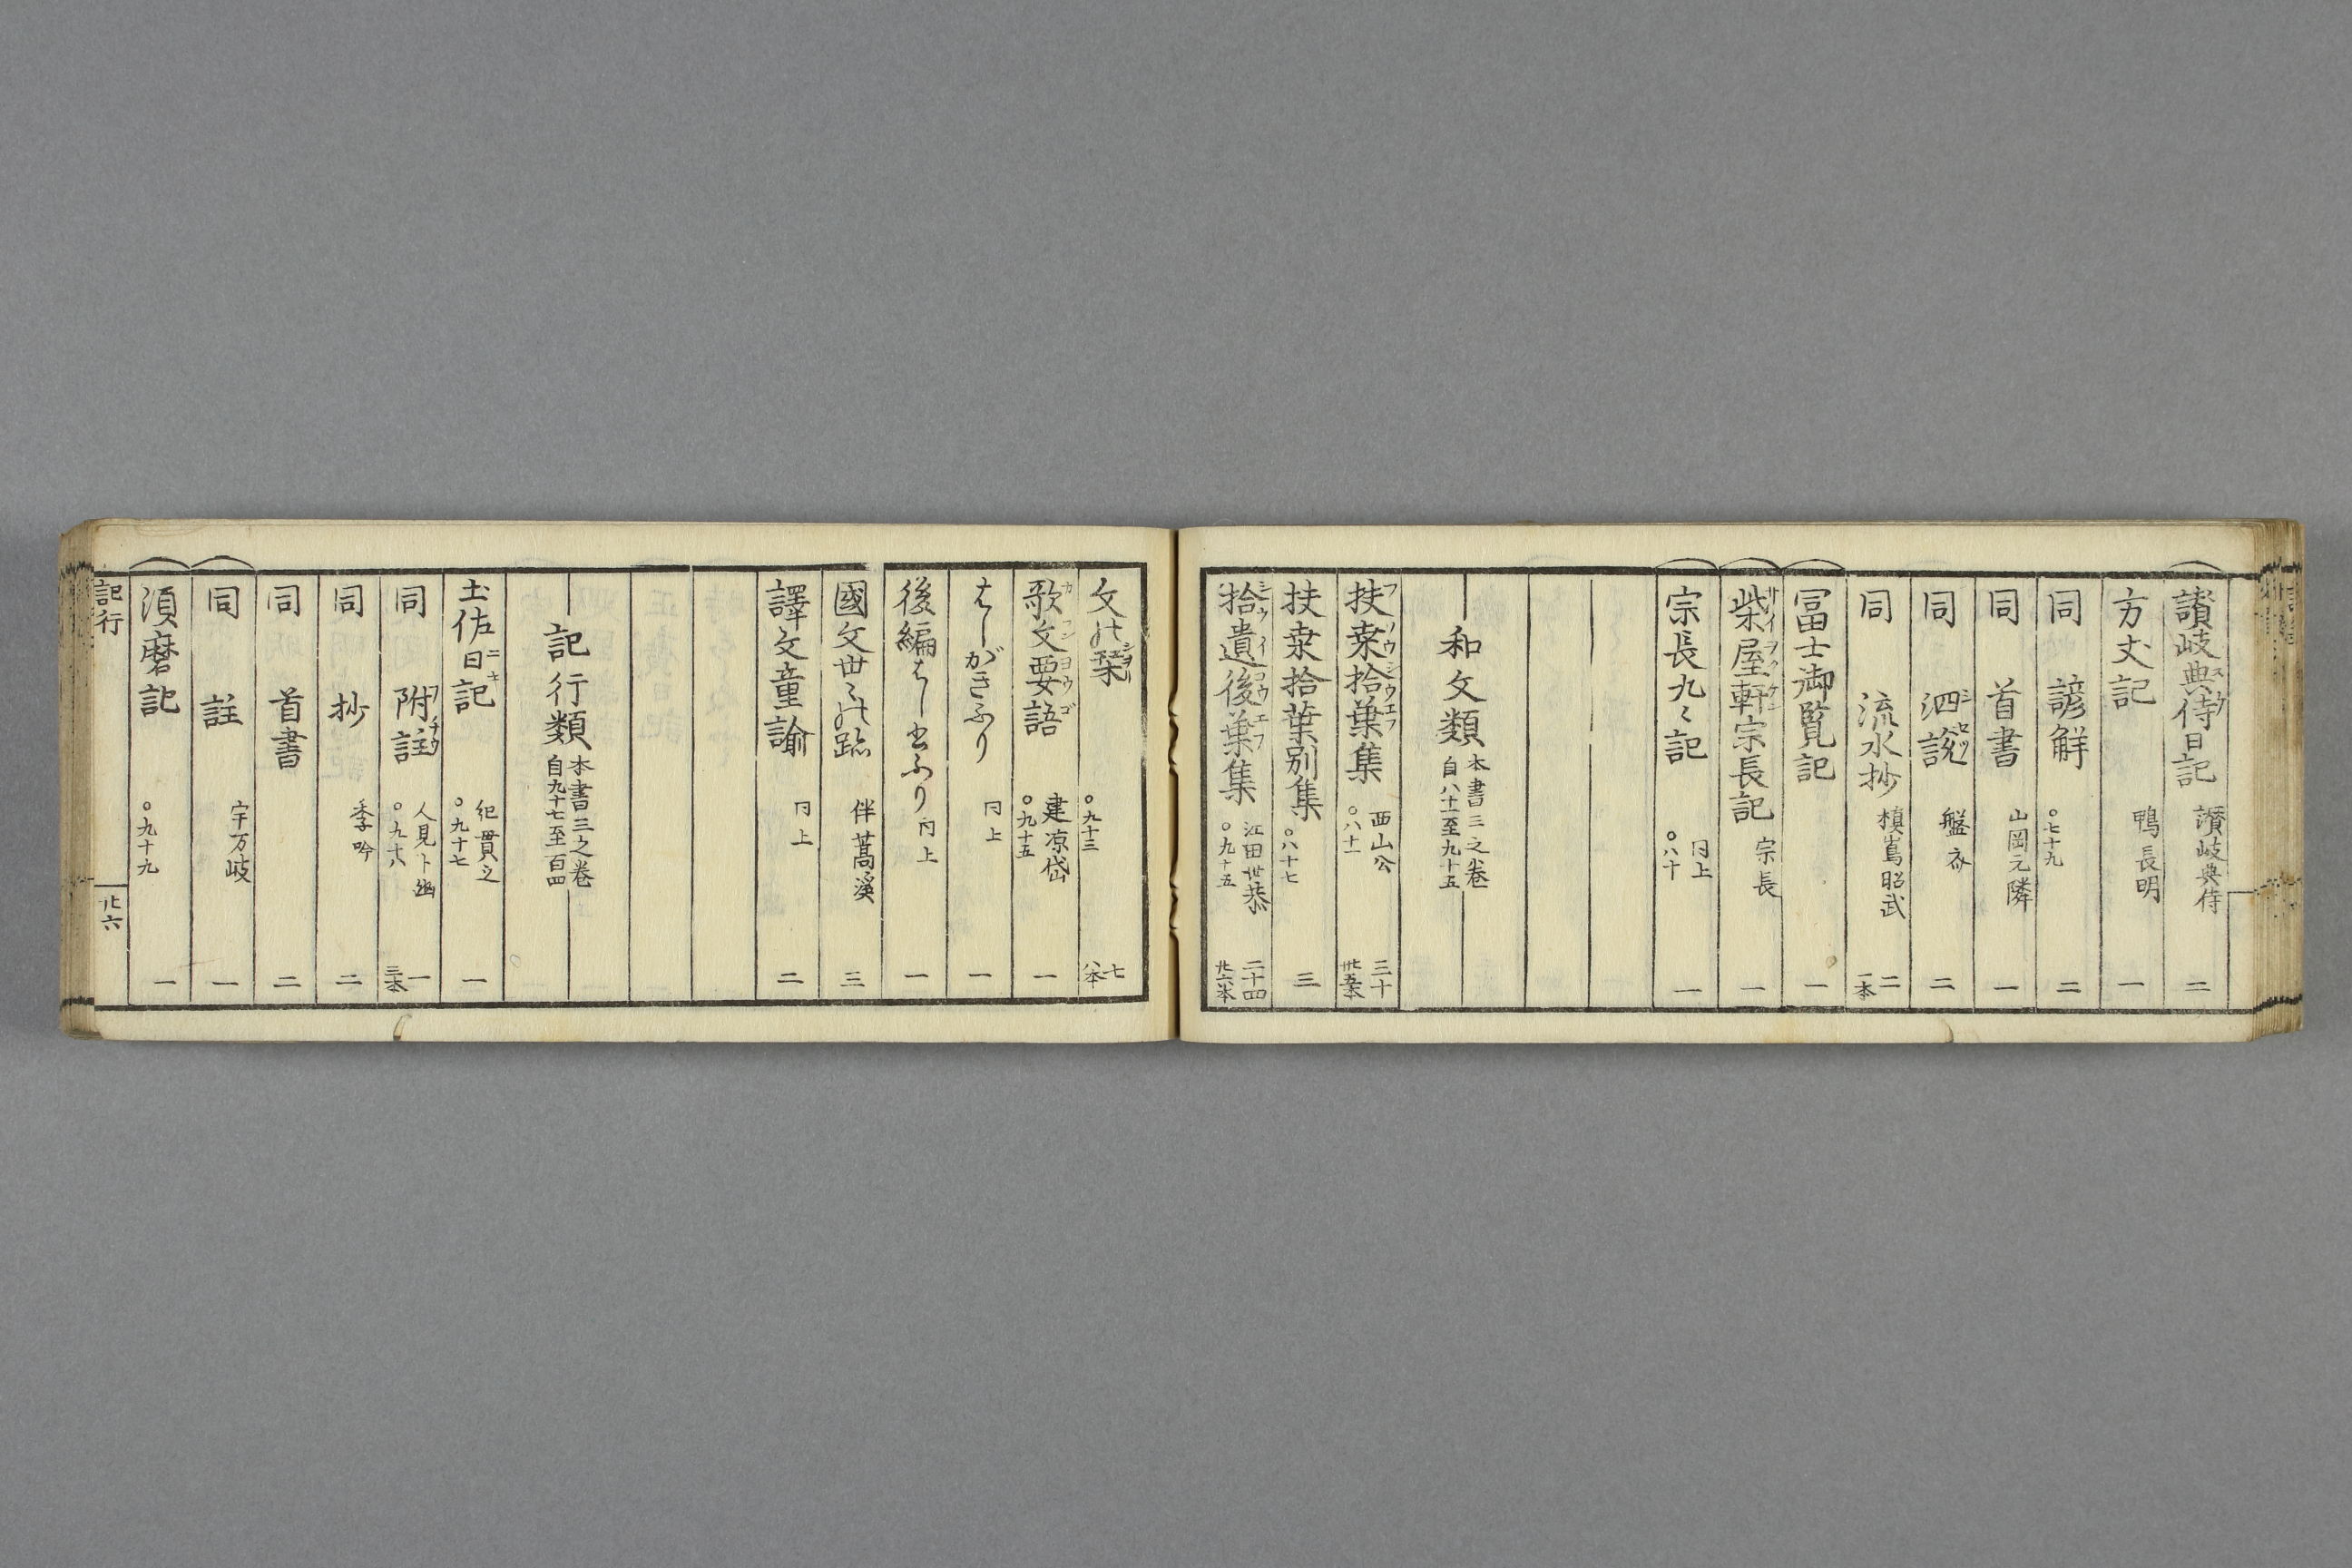 讃岐典侍日記 讃岐典侍 二
方丈記 鴨長明 一
同 諺解 ○七十九 二
同 首書 山岡元隣 一
同 泗説 盤斎 二
同 流水抄 槙嶌昭武 二 一本
冨士御覧記 一
柴屋軒宗長記 宗長 一
宗長九〻記 同上 ○八十 一
和文類 本書三之巻 自八十一至九十五
扶桒拾葉集 西山公 ○八十一 三十 卅五本
扶桒拾葉別集 ○八十七 三
拾遺後葉集 江田世恭 ○九十五 二十四 廿六本
文の栞 ○九十三 七 八本
歌文要語 建凉岱 ○九十五 一
はしがきぶり 同上 一
後編はし書ぶり 同上 一
國文世々の跡 伴蒿溪 三
譯文童諭 同上 二
記行類 本書三之巻 自九十七至百四
土佐日記 紀貫之 ○九十七 一
同 附註 人見卜幽 ○九十八 一 三本
同 抄 季吟 二
同 首書 二
同 註 宇万岐 一
須磨記 ○九十九 一
記行 廿六